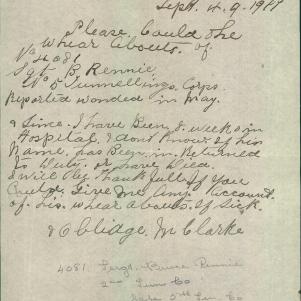 Sept. 4. 9. 1917
Please Could she
Whear abouts of
No 4081
Sgt B. Rennie
No 5 Tunnelling Corps.
Reported wonded in May.
& Since. I have Been 8 weeks in
Hospital I dont know if his
Name. has Been in. Returned
to Duty. or have Died
I will Be thankfull if you
Could. Give Me Any Account
of. his. whear abouts if Sick.
& Oblidge. M Clarke
4081 Sergt. Bruce Rennie
2nd Tunn Co